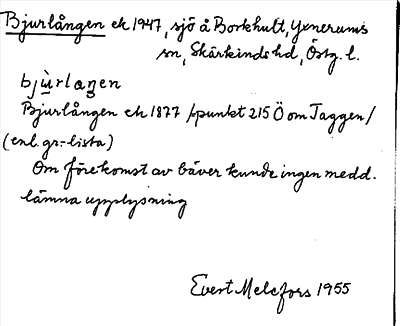 Bjurlången ek 1947, sjö å Borkhult, Yxnerums
sn, Skärkinds hd, Östg. l.
bjùrlaŋen
Bjurlången ek 1877 /punkt 215 Ö om Taggen/
(enl. gr.-lista)
Om förekomst av bäver kunde ingen medd.
lämna upplysning
Evert Melefors 1955